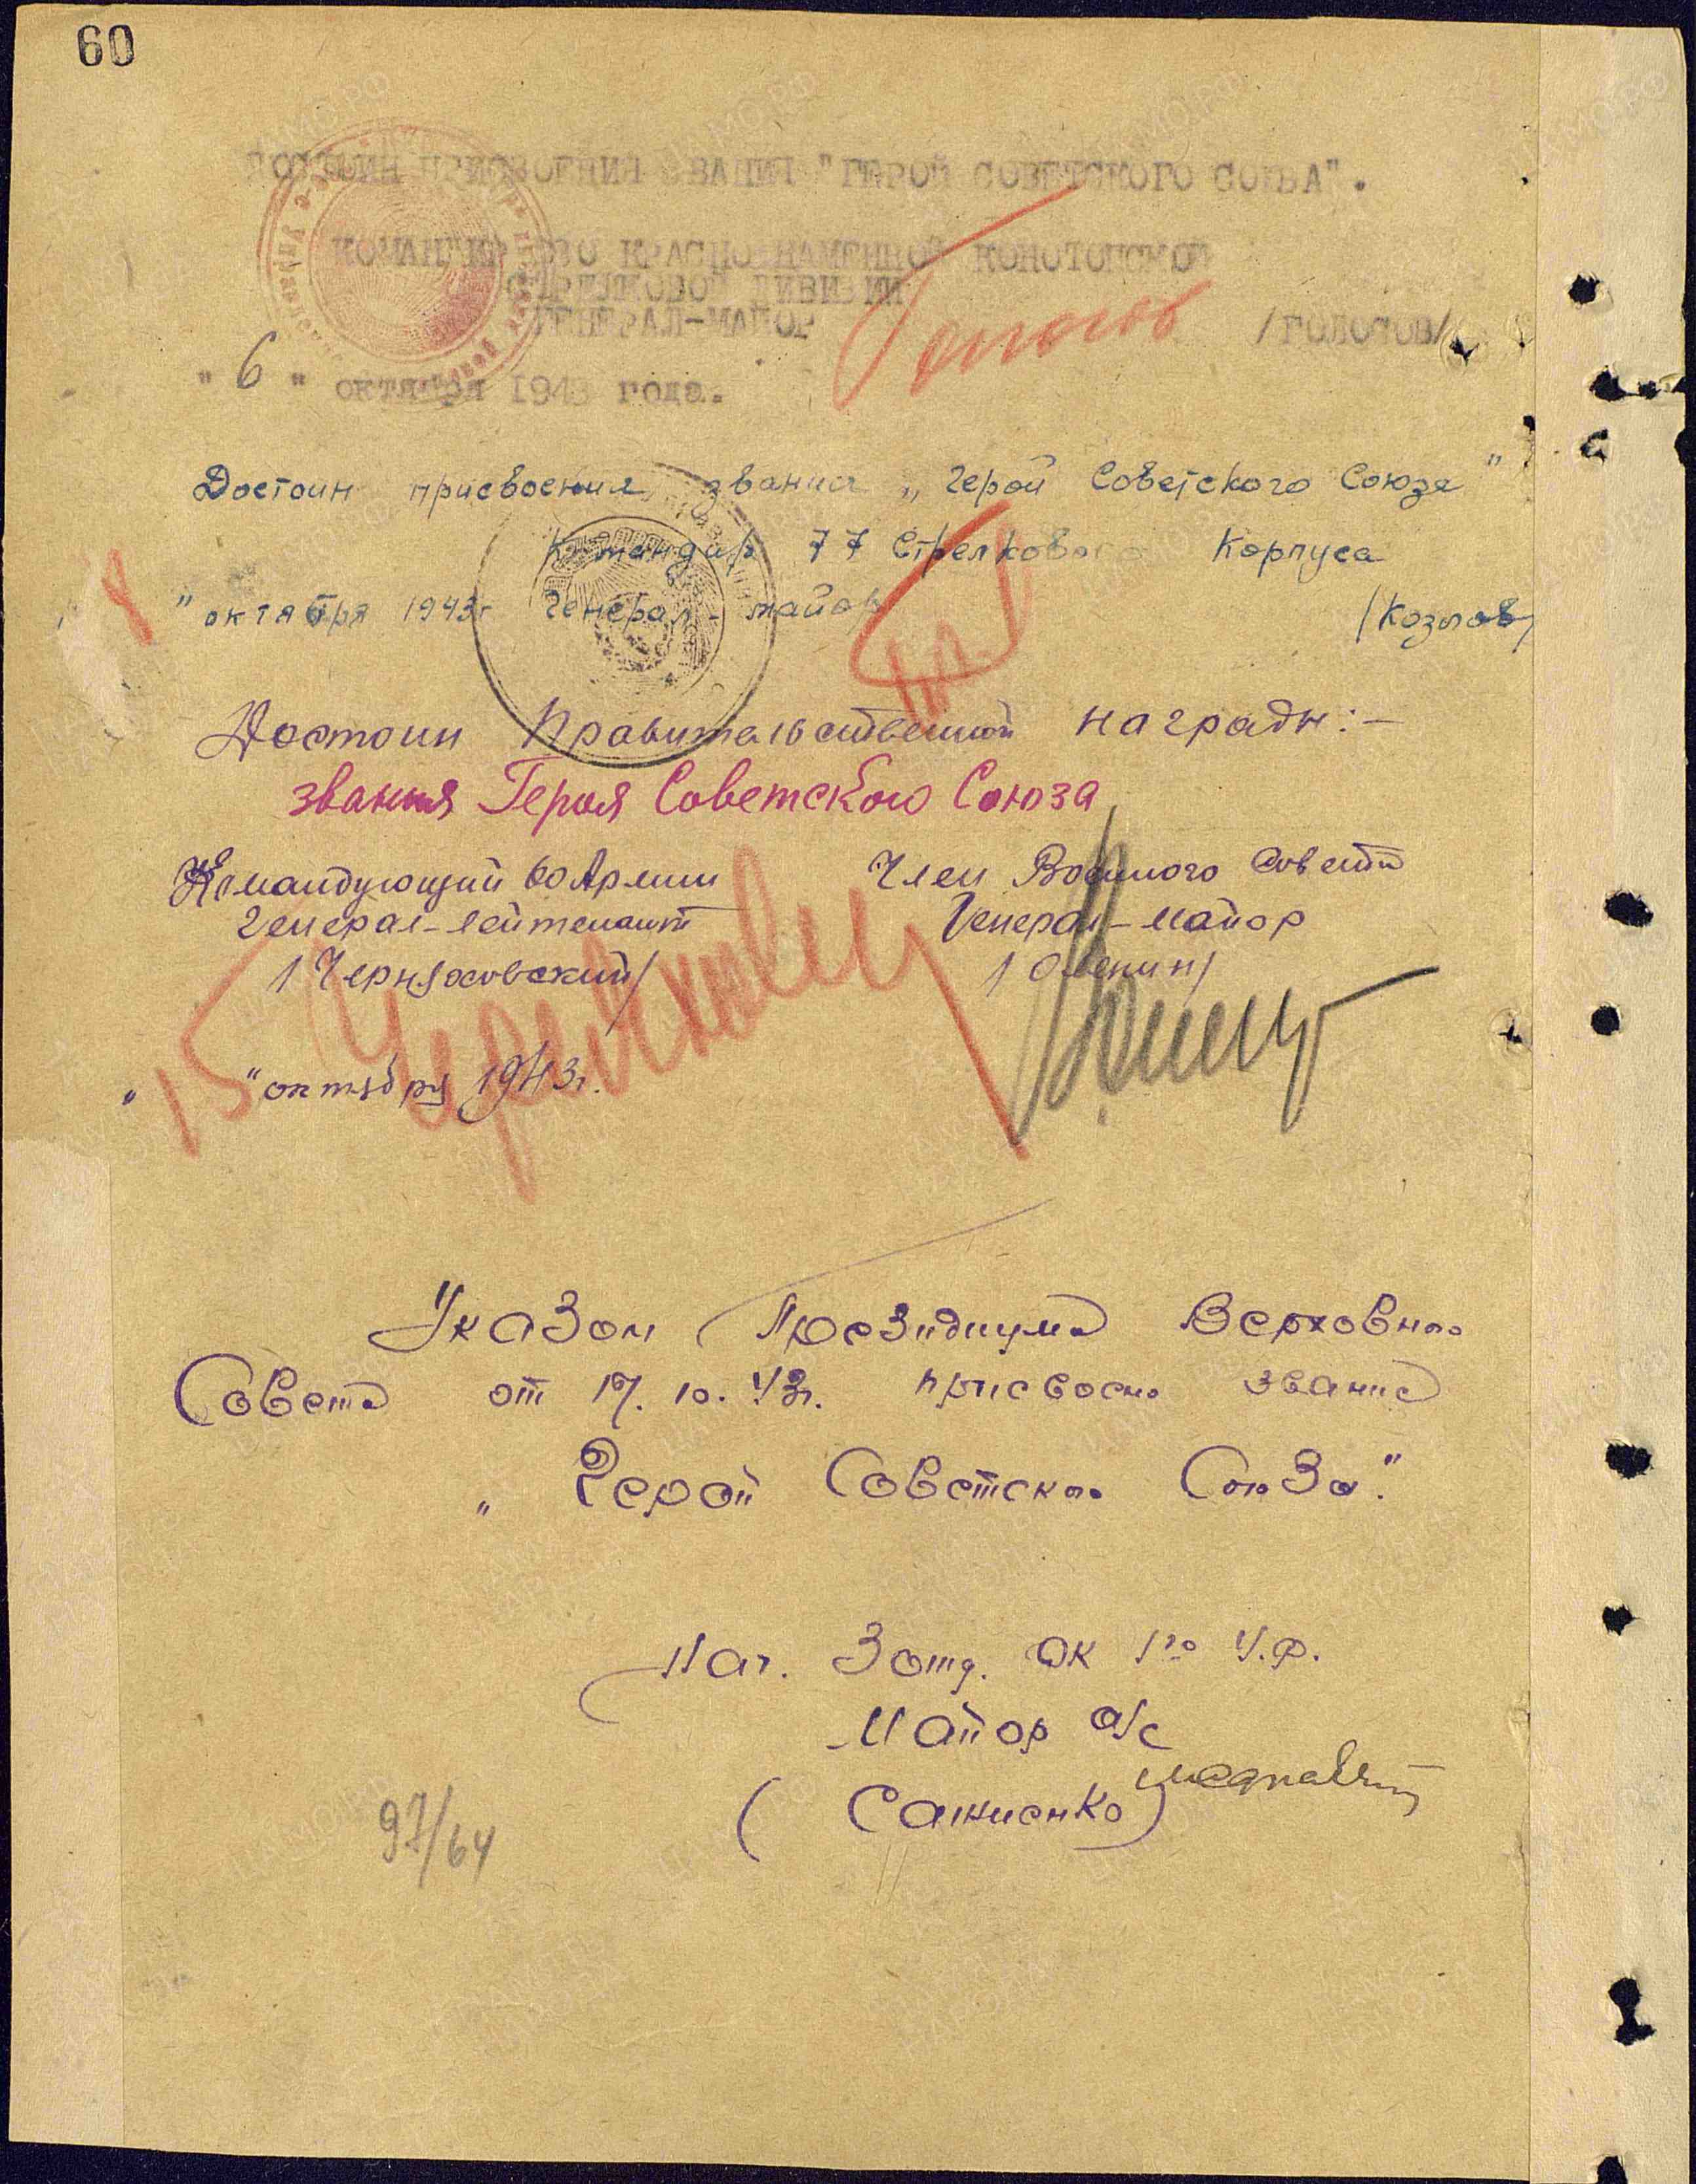 60
ДОСТОИН ПРИСВОЕНИЯ ЗВАНИЯ "ГЕРОЙ СОВЕТСКОГО СОЮЗА".
КОМАНДИР КРАСНОЗНАМЕННОЙ КОНОТОПСКОЙ
СТРЕЛКОВОЙ ДИВИЗИИ
ГЕНЕРАЛ-МАЙОР /ГОЛОСОВ/
"6" октября 1943 года.
Достоин присвоения звания „Герой Советского Союза"
Командир 77 Стрелкового Корпуса
"октября 1943г Генерал-майор /Козлов/
Достоин Правительственной награды:-
звания Героя Советского Союза
Командующий 60 Армии Член Военного Совета
Генерал-лейтенант Генерал-майор
/Черняховский/ /Оленин/
"15" октября 1943г.
Указом Президиума Верховного
Совета от 17.10.43г. присвоено звание
„Герой Советского Союза".
Нач. 3 отд. ОК 1го У.Ф.
Майор а/с
(Сажиенко)
97/64